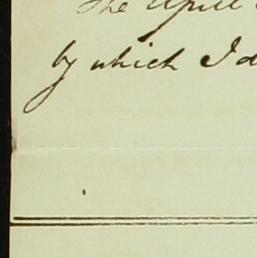 The April
by which I d